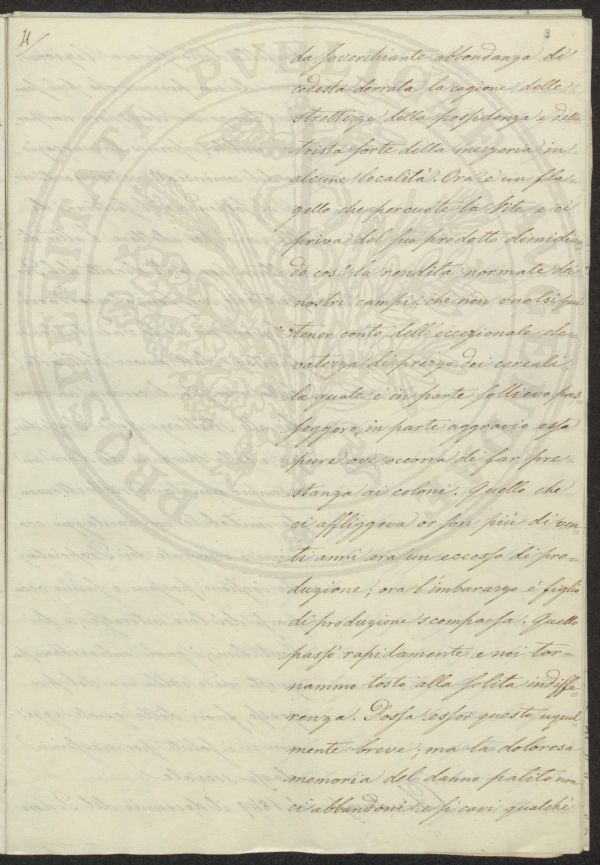 11/
3
da soverchiante abbondanza di
codesta derrata la cagione delle
strettezze della possidenza e della
trista sorte della mezzeria in
alcune località. Ora è un fla-
gello che percuote la Vite e ci
priva del suo prodotto dimidian-
do così la rendita normale dei
nostri campi; che non vuolsi qui
tener conto dell'eccezionale ele-
vatezza di prezzo dei cereali,
la quale è in parte sollievo pas-
seggero, in parte aggravio essa
pure ove occorra di far pre-
stanza ai coloni. Quello che
ci affliggeva or son più di ven-
ti anni era un eccesso di pro-
duzione; ora l'imbarazzo è figlio
di produzione scomparsa. Quello
passò rapidamente e noi tor-
nammo tosto alla solita indiffe-
renza. Possa esser questo ugual-
mente breve; ma la dolorosa
memoria del danno patito non
ci abbandoni e si cavi qualche
PROSPERITATI PUBLICAE AUGENDAE